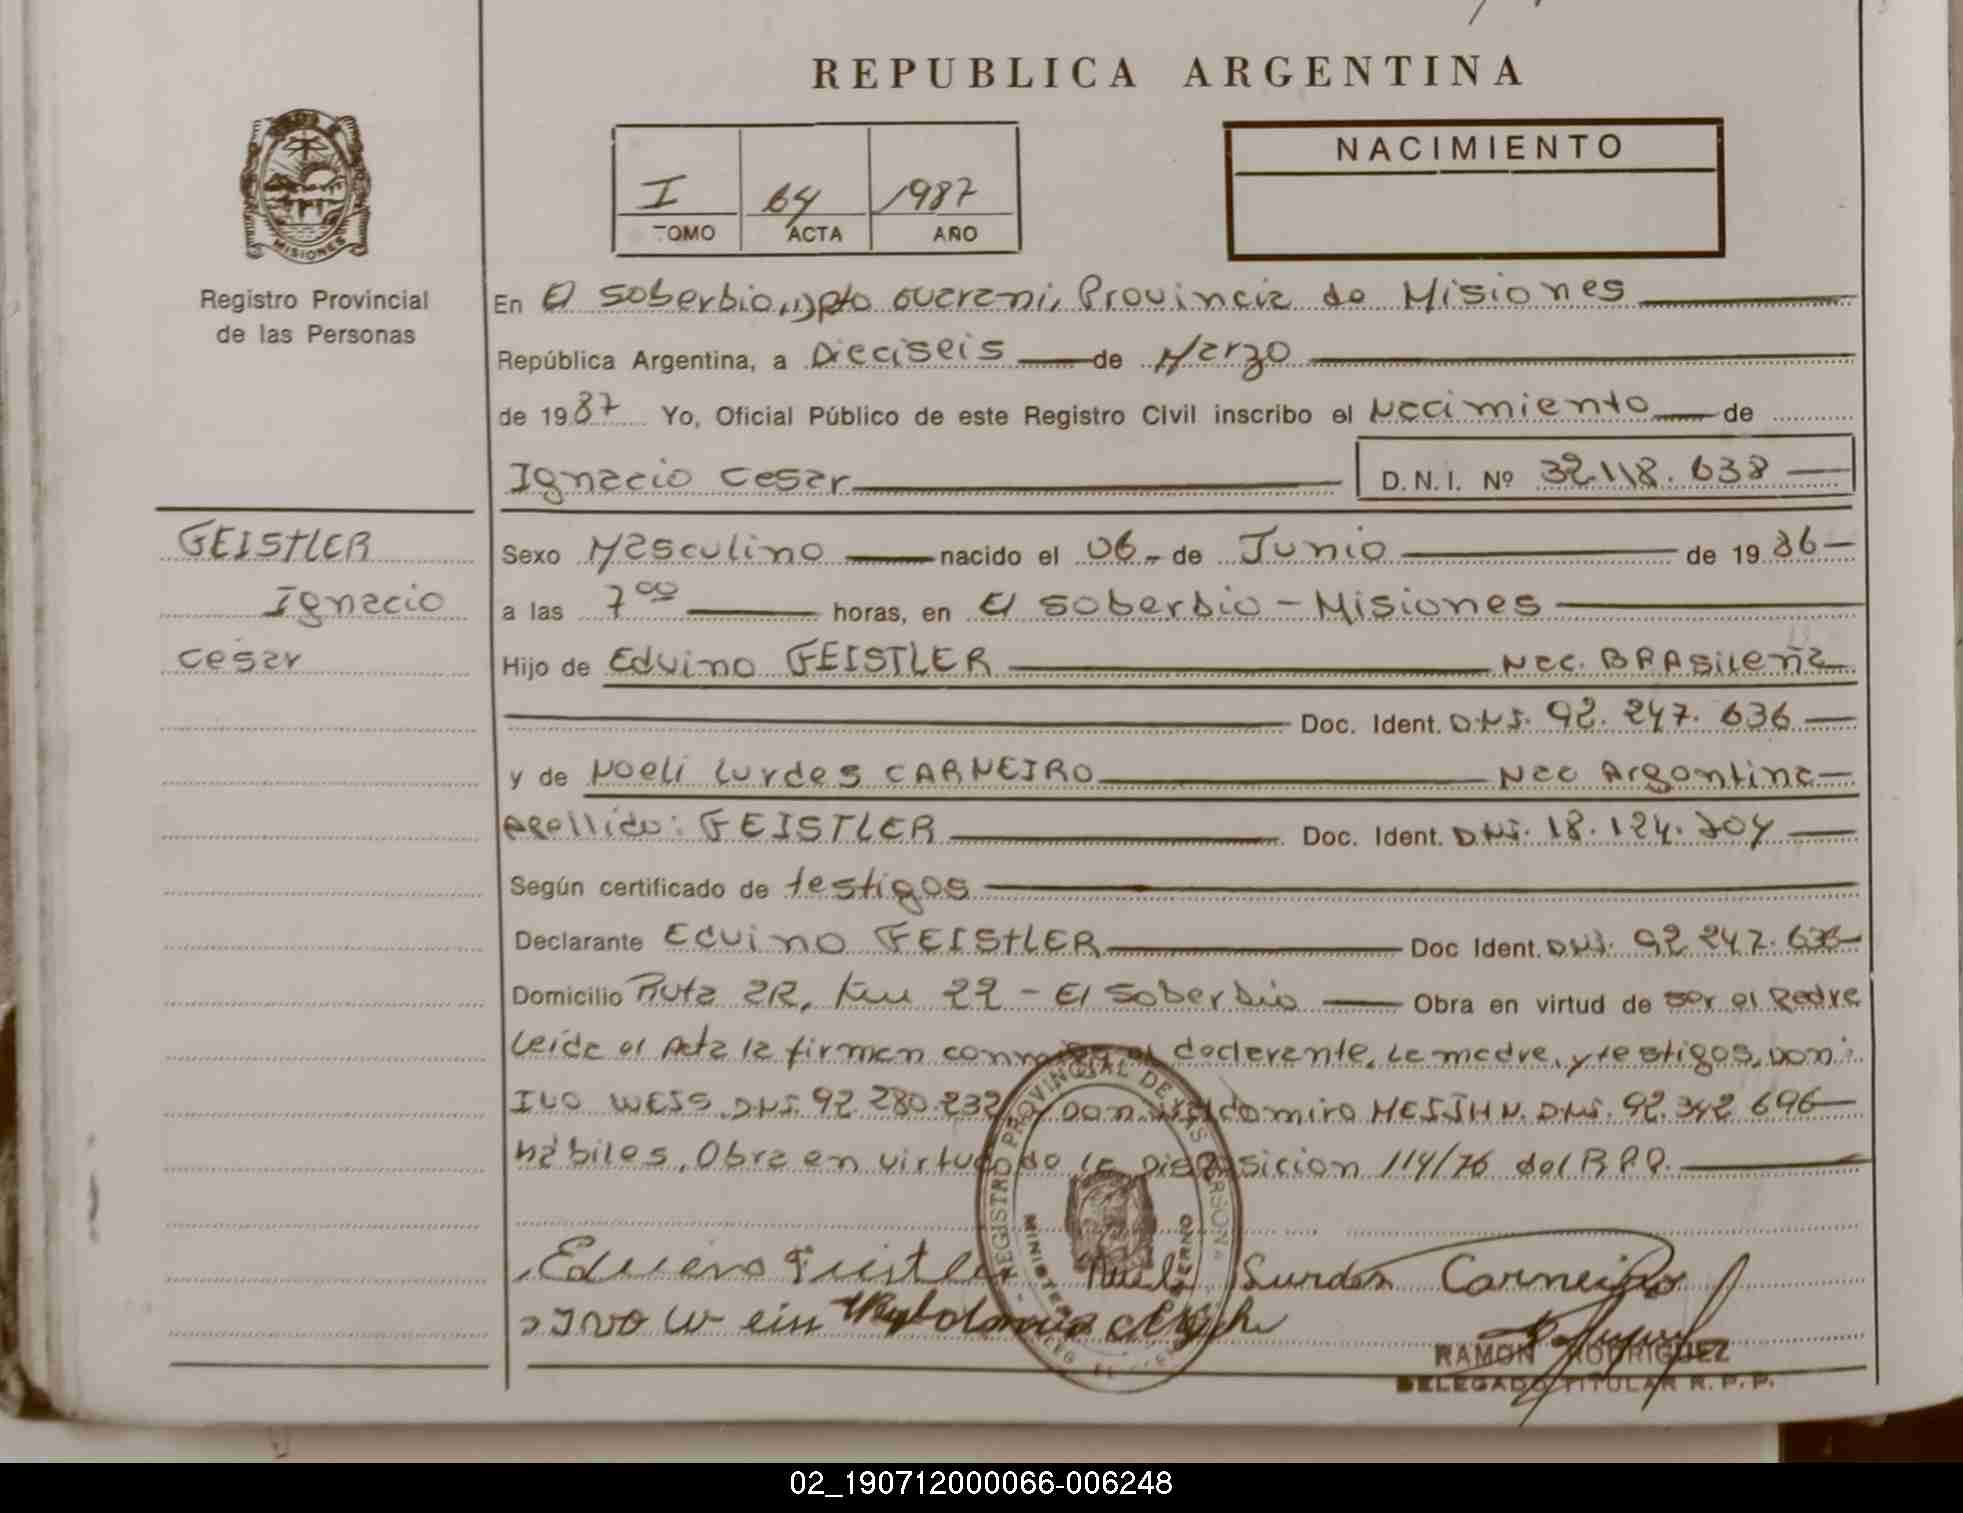 REPUBLICA ARGENTINA
MISIONES
Registro Provincial
de las Personas
I 64 1987
TOMO ACTA AÑO
NACIMIENTO
En El Soberbio, Dpto Guarani, Provincia de Misiones
República Argentina, a Dieciseis de Marzo
de 1987 Yo, Oficial Público de este Registro Civil inscribo el Nacimiento de
Ignacio Cesar D.N.I. Nº 32.118.638
GEISTLER
Ignacio
Cesar
Sexo Masculino nacido el 06 de Junio de 1986
a las 7 00 horas, en El Soberbio - Misiones
Hijo de Eduino GEISTLER Nac. BRAsileña
Doc. Ident. DNI. 92.247.636
y de Noeli Lurdes CARNEIRO Nac Argentina
apellido: GEISTLER Doc. Ident. DNI. 18.124.704
Según certificado de testigos
Declarante Eduino GEISTLER Doc Ident. DNI. 92.247.636
Domicilio Ruta 2R, Km 22 - El Soberbio Obra en virtud de ser el Padre
Leida el Acta la firman conmigo el declarante, La madre, y testigos, Don:
IVO WEIS, DNI. 92.280.232, y Don Valdomiro DNI. 92.342 696
hábiles, Obra en virtud de la Disposicion 114/76 del R.P.P.
REGISTRO PROVINCIAL DE LAS PERSONAS
Lurdes Carneiro
Ivo
RAMON RODRIGUEZ
DELEGADO TITULAR R. P. P.
02_190712000066-006248